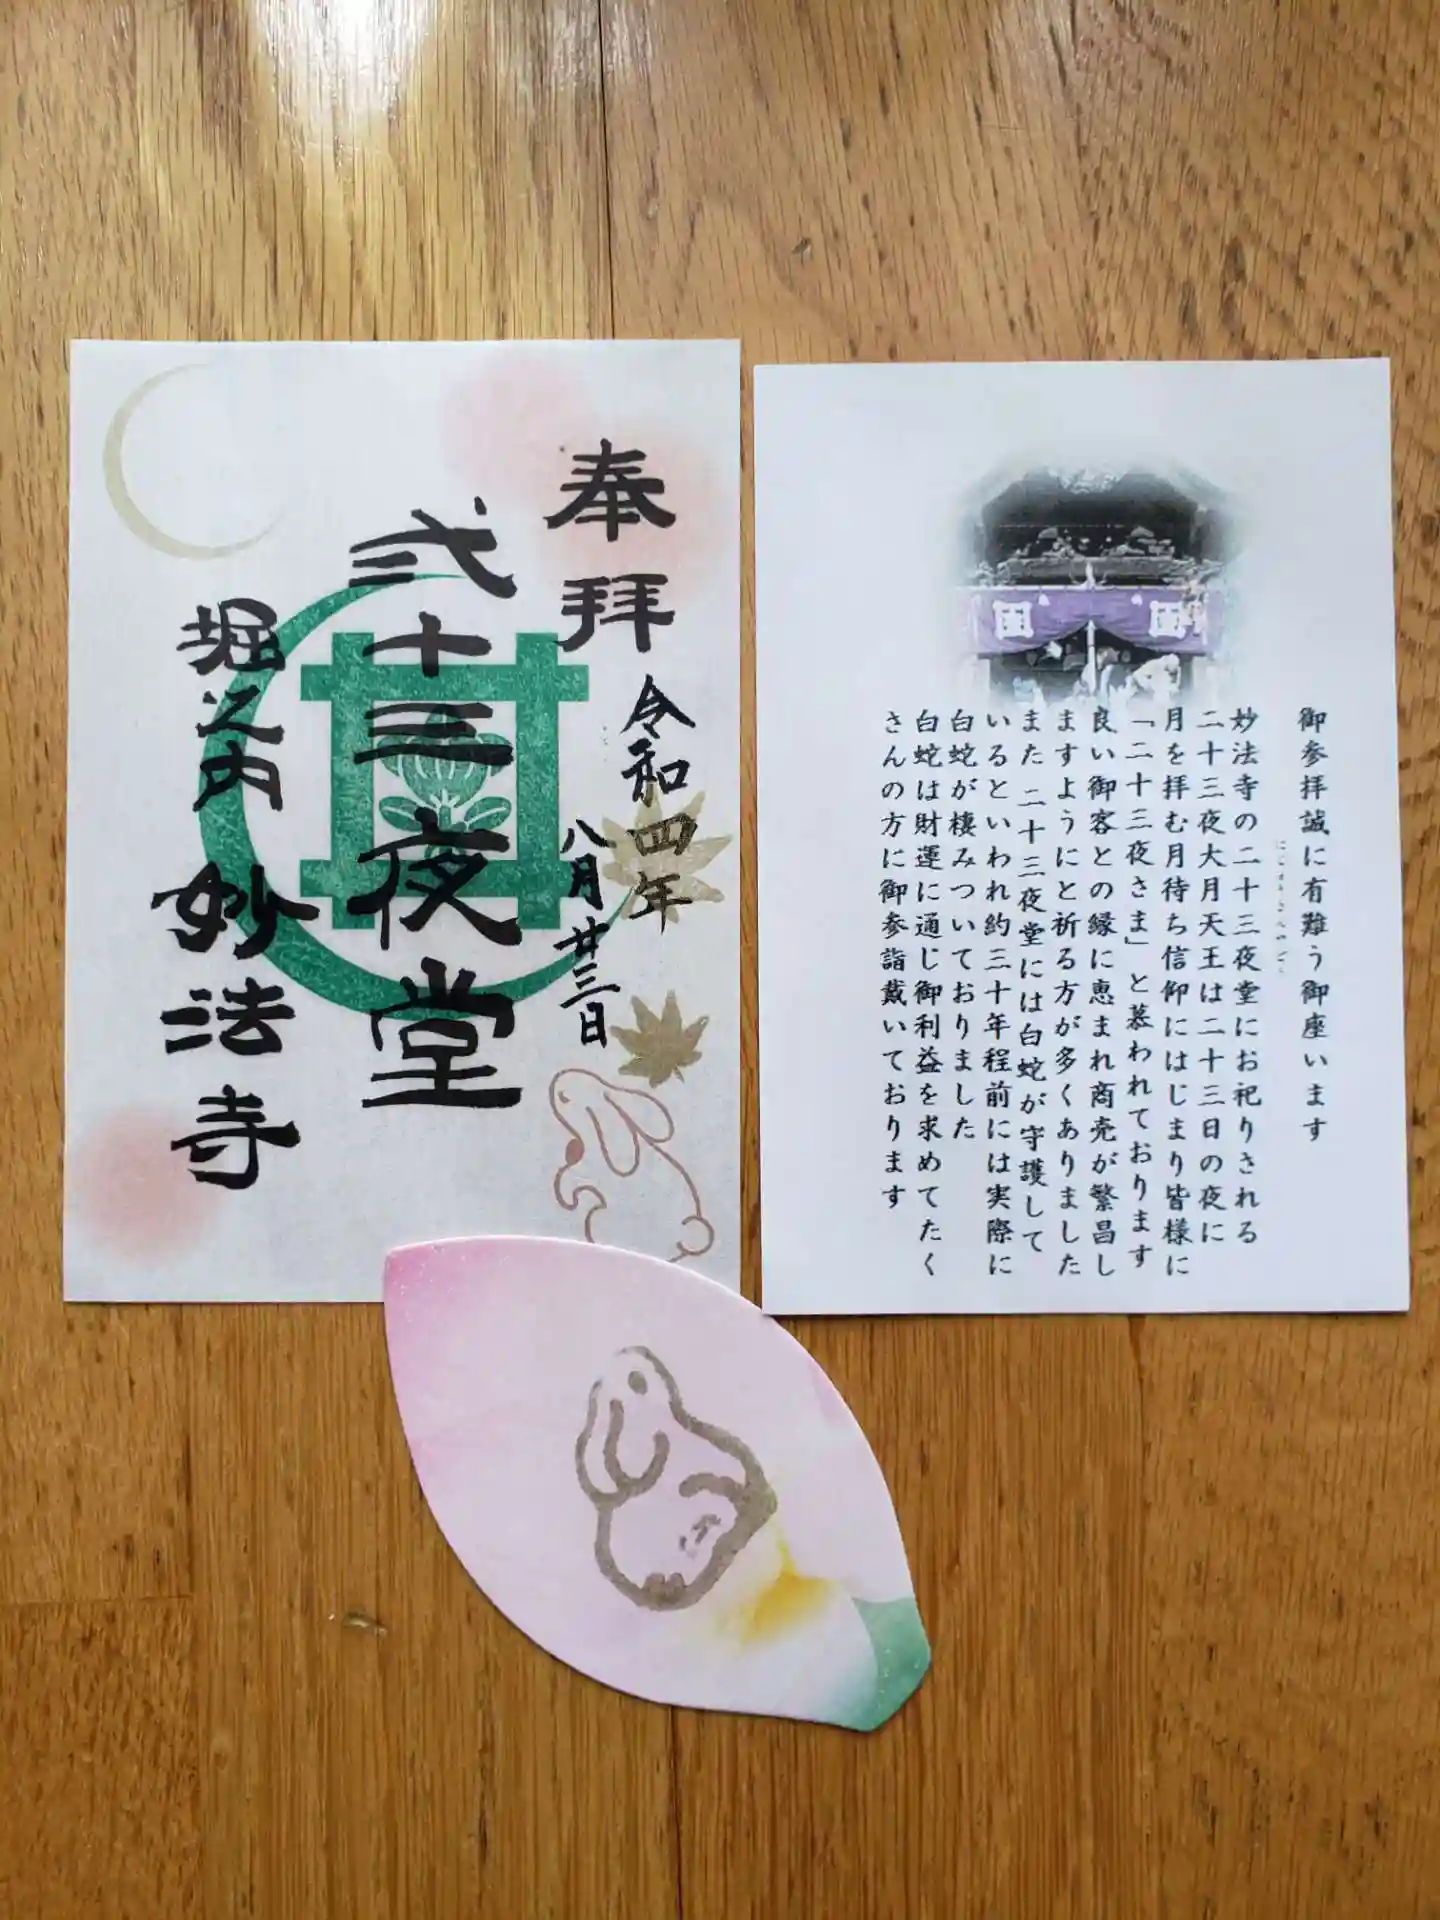 奉拝
令和四年
八月廿三日
弐十三夜堂
堀之内
妙法寺
御参拝誠に有難う御座います
妙法寺の二十三夜堂にお祀りされる
二十三夜大月天王は二十三日の夜に
月を拝む月待ち信仰にはじまり皆様に
「二十三夜さま」と慕われております
良い御客との縁に恵まれ商売が繁昌し
ますようにと祈る方が多くありました
また 二十三夜堂には白蛇が守護して
いるといわれ約三十年程前には実際に
白蛇が棲みついておりました
白蛇は財運に通じ御利益を求めてたく
さんの方に御参詣戴いております